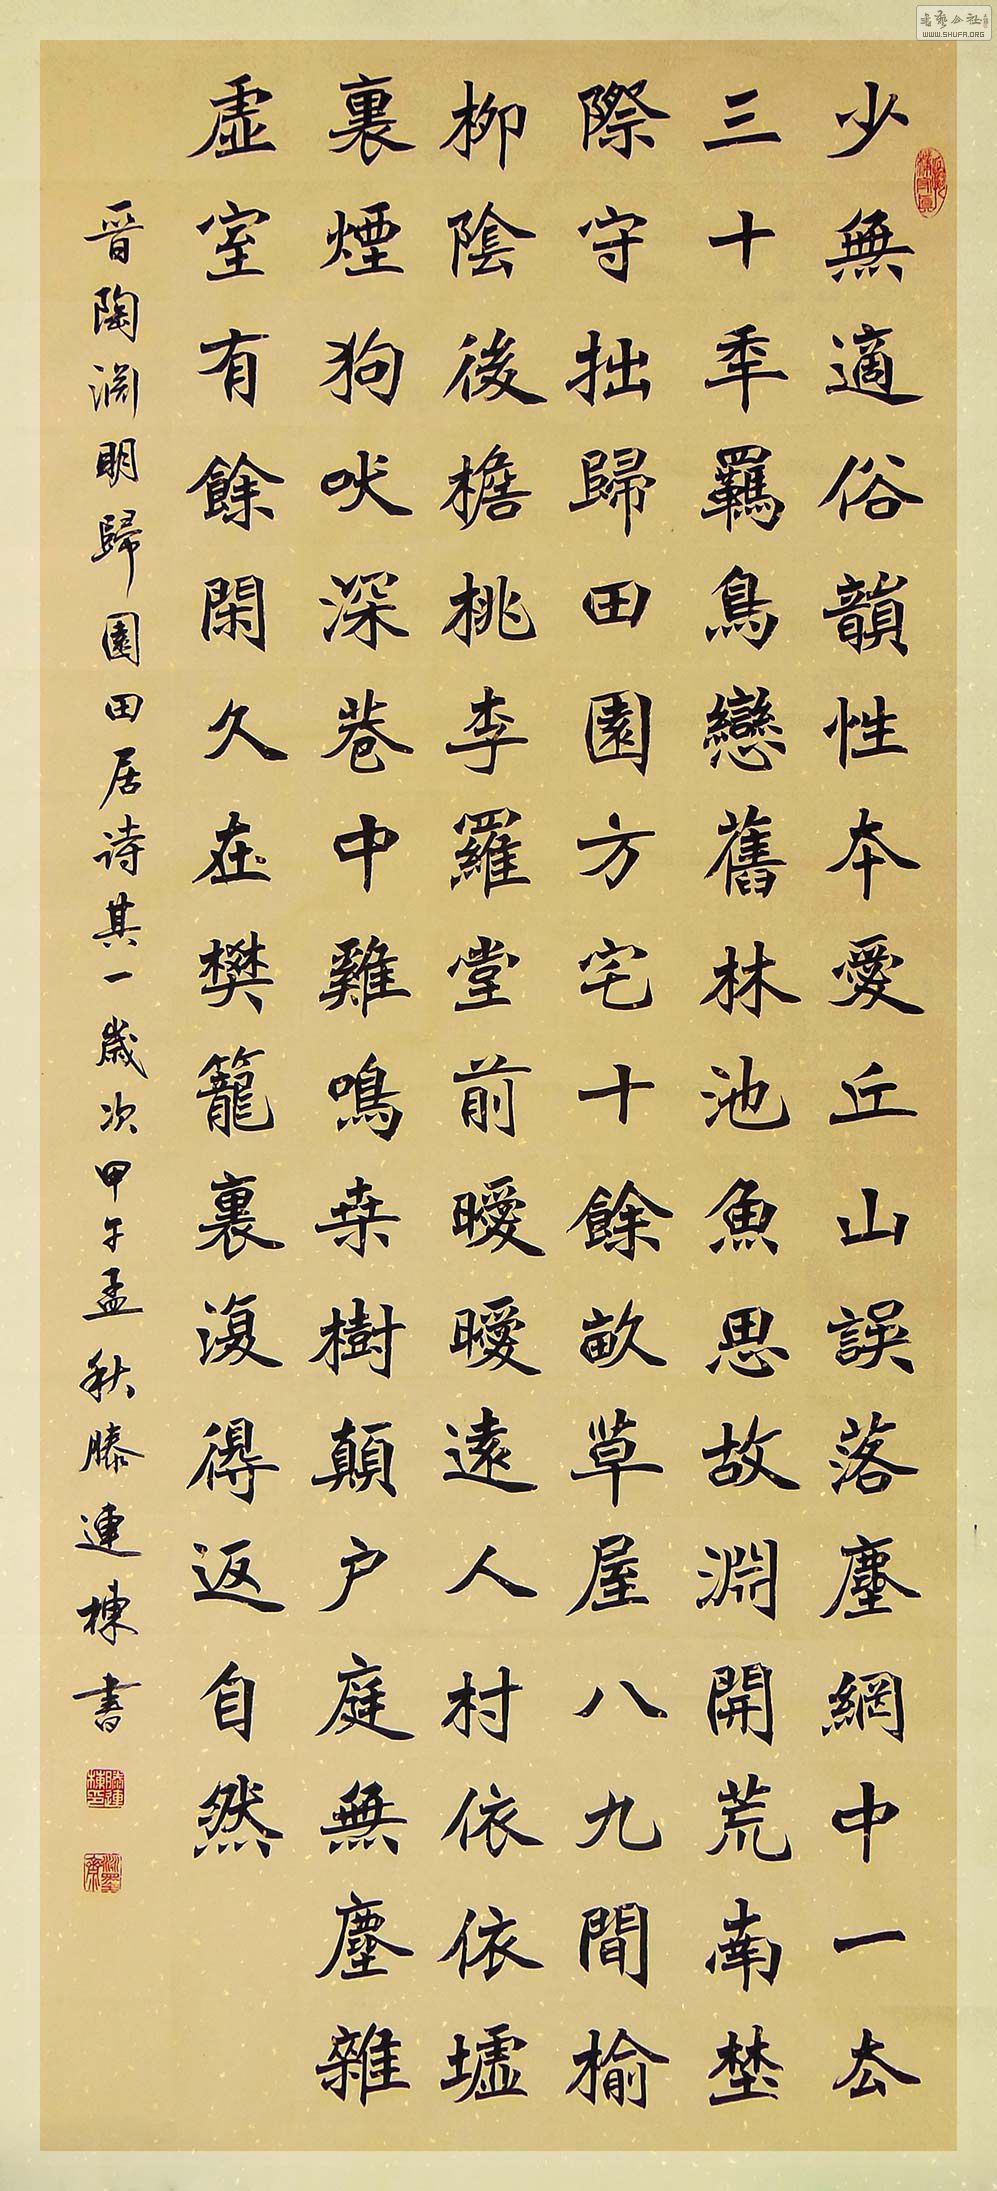 少無適俗韻性本愛丘山誤落塵網中一去
三十年羈鳥戀舊林池魚思故淵開荒南埜
際守拙歸田園方宅十餘畝草屋八九間榆
柳陰後檐桃李羅堂前曖曖遠人村依依墟
裏煙狗吠深巷中雞鳴桒樹顛户庭無塵雜
虛室有餘閑久在樊籠裏復得返自然
晉陶渊明歸園田居诗其一歲次甲午孟秋滕連棟書
WWW.SHUFA.ORG